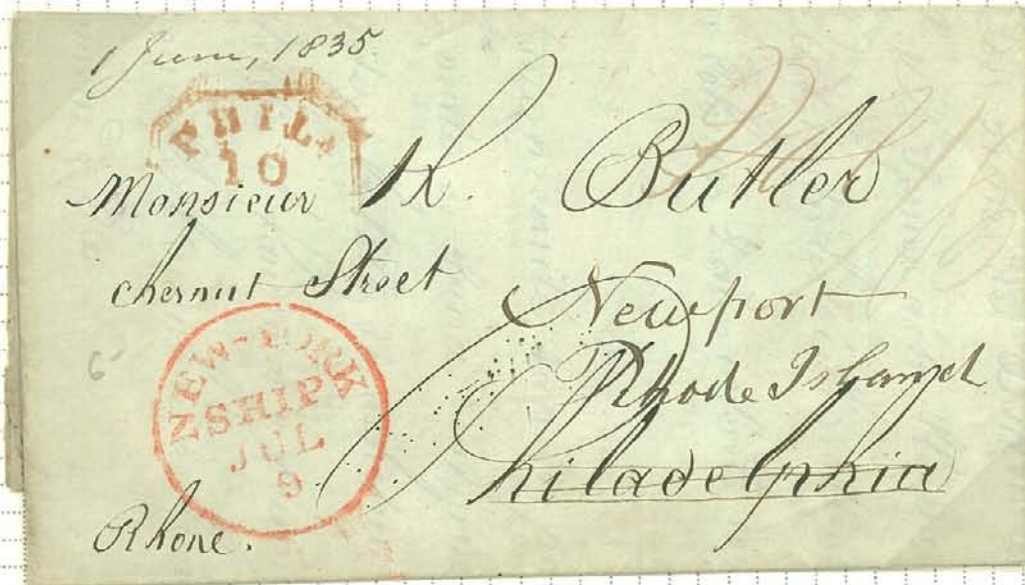 1 June, 1835
PHILa
10
Monsieur H. Butler
chesnut Street
Newport
Rhode Island
Philadelphia
NEW-YORK
SHIP
JUL
9
6
Rhone.